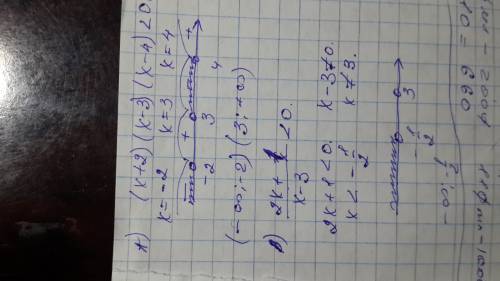 *) (x+2)(x-3)(x-4)<0
x=-2 x=3 x=4
- + - +
-2 3 4
(-∞;-2) (3;+∞)
b) (2x+1)/(x-3) <0.
2x+1<0. x-3≠0.
x<-1/2 x≠3.
-1/2 3
-∞;-1/2
= 660